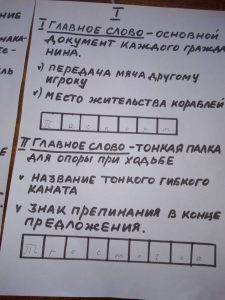 НИЕ
НАКА-
ТЕ-
ЕЛЬ
I
I ГЛАВНОЕ СЛОВО - ОСНОВНОЙ
ДОКУМЕНТ КАЖДОГО ГРАЖДА
НИНА.
v) ПЕРЕДАЧА МЯЧА ДРУГОМУ
ИГРОКУ
v) МЕСТО ЖИТЕЛЬСТВА КОРАБЛЕЙ
П а с п о р т
II ГЛАВНОЕ СЛОВО - ТОНКАЯ ПАЛКА
ДЛЯ ОПОРЫ ПРИ ХОДЬБЕ
v НАЗВАНИЕ ТОНКОГО ГИБКОГО
КАНАТА
v ЗНАК ПРЕПИНАНИЯ В КОНЦЕ
ПРЕДЛОЖЕНИЯ.
Т р о с т о ч к а